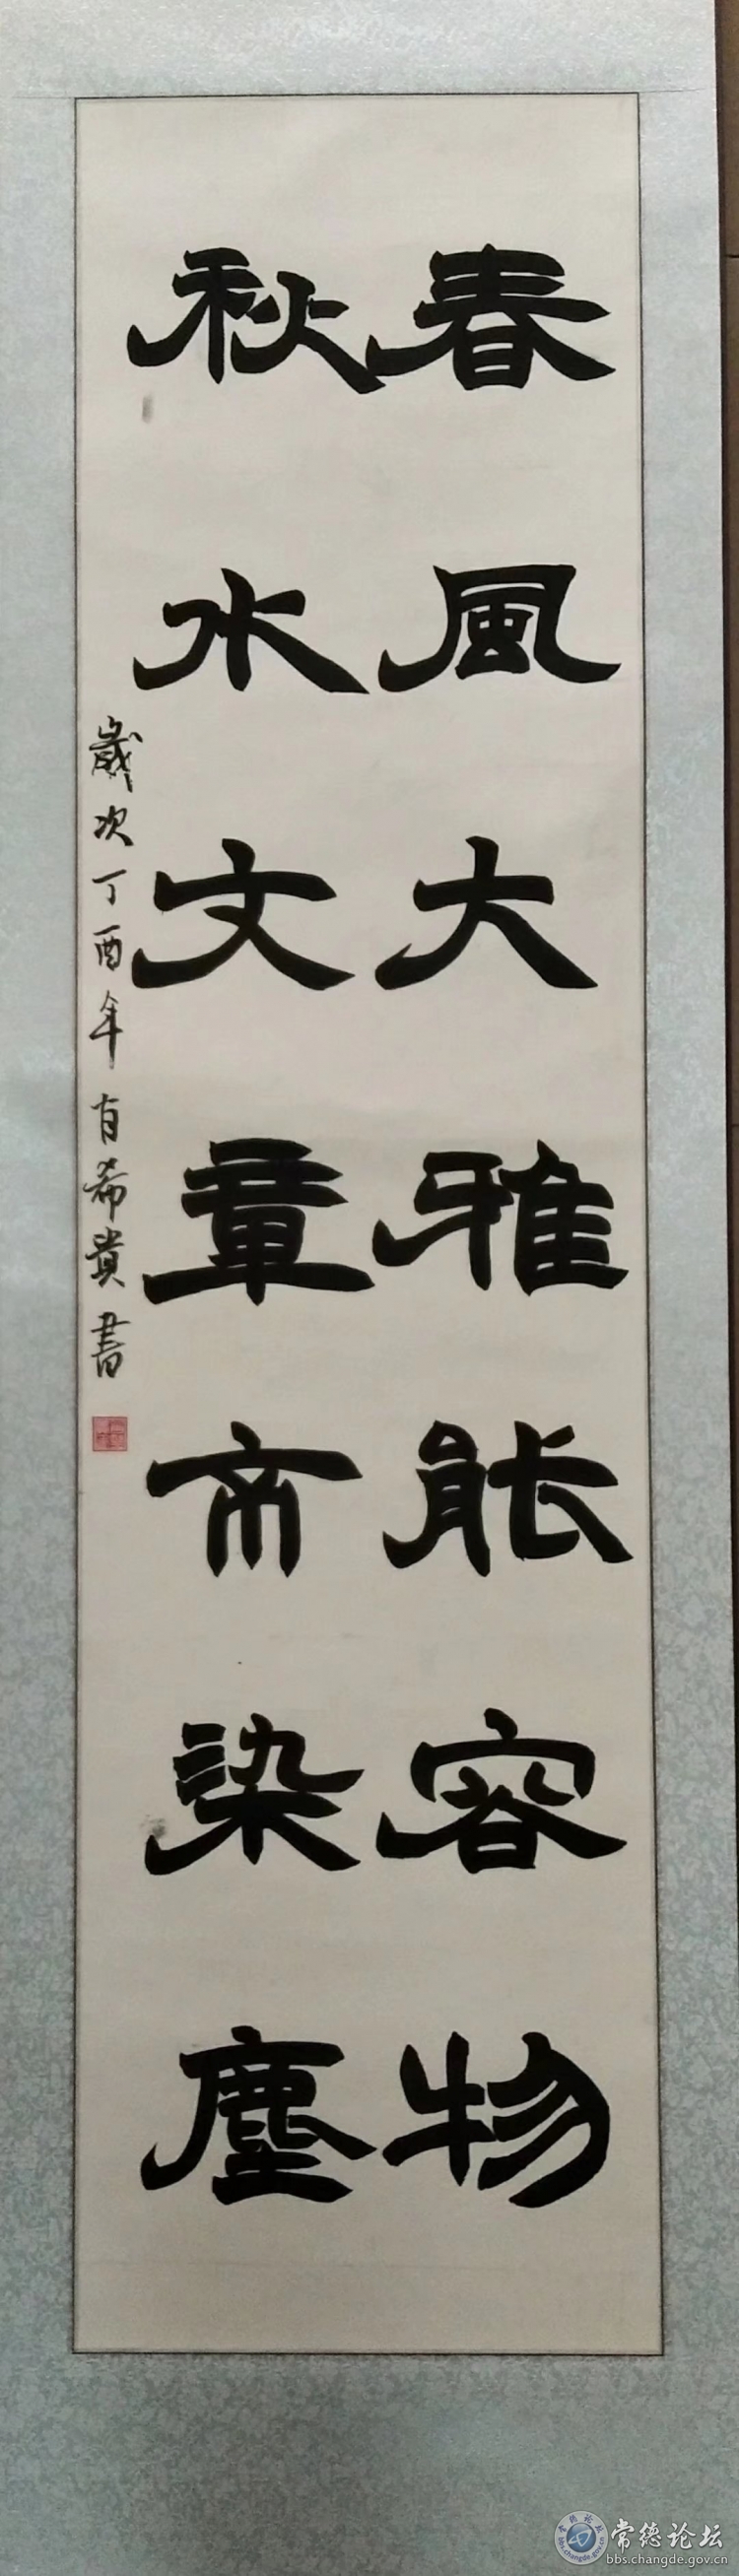 春風大雅能容物
秋水文章不染塵
歲次丁酉年 肖希貴書
常德论坛
bbs.changde.gov.cn